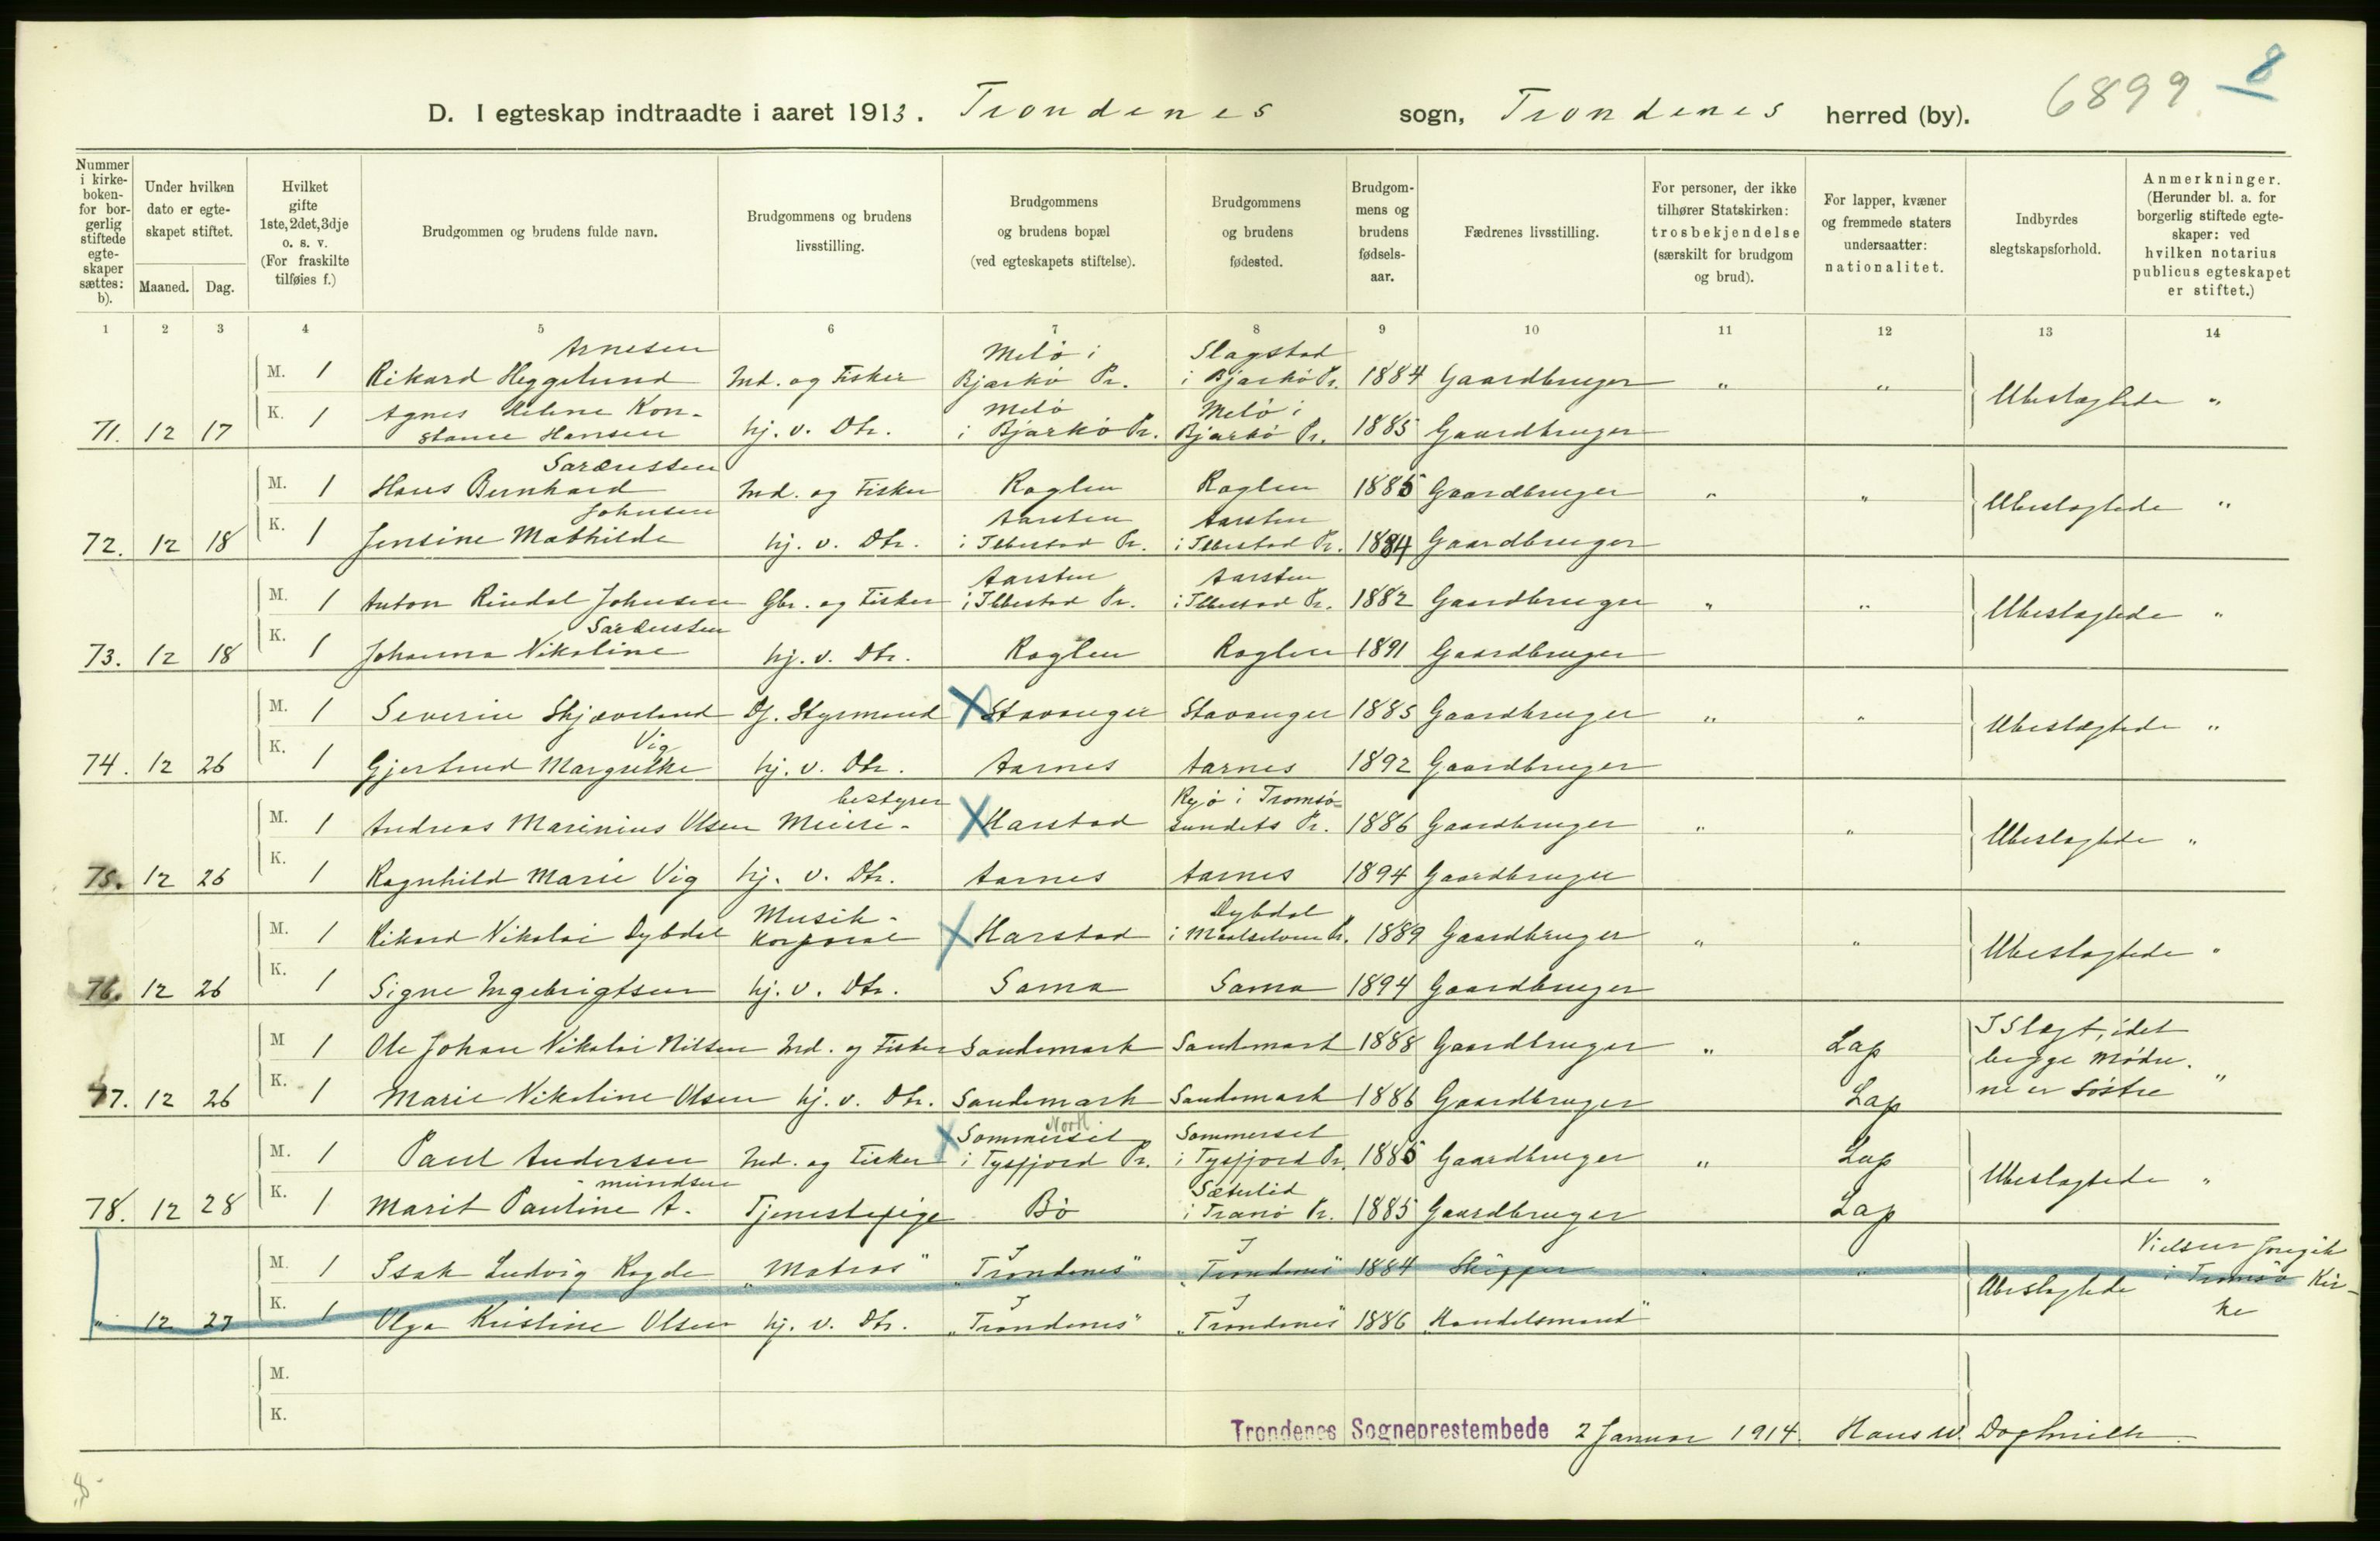 6899 8
D. I egteskap indtraadte i aaret 1913. Trondenes sogn, Trondenes herred (by).
Nummer i kirke-boken- for bor-gerlig stiftede egte-skaper sættes: b).
Under hvilken dato er egte-skapet stiftet.
Maaned. Dag.
Hvilket gifte 1ste, 2det, 3dje o. s. v. (For fraskilte tilføies f.)
Brudgommen og brudens fulde navn.
Brudgommens og brudens livsstilling.
Brudgommens og brudens bopæl (ved egteskapets stiftelse).
Brudgommens og brudens fødested.
Brudgom-mens og brudens fødsels-aar.
Fædrenes livsstilling.
For personer, der ikke tilhører Statskirken: trosbekjendelse (særskilt for brudgom og brud).
For lapper, kvæner og fremmede staters undersaatter: nationalitet.
Indbyrdes slegtskapsforhold.
Anmerkninger. (Herunder bl. a. for borgerlig stiftede egte-skaper: ved hvilken notarius publicus egteskapet er stiftet.)
1 2 3 4 5 6 7 8 9 10 11 12 13 14
Arnesen Melö i Slagstad
M. 1 Rikard Heggelund Ind. og Fisker Bjarkö Pr. i Bjarkö Pr. 1884 Gaardbruger " " Ubeslagtede "
K. 1 Agnes Helene Kon- Melö Melö i
71. 12 17 stance Hansen hj. v. Dtr. i Bjarkö Pr. Bjarkö Pr. 1885 Gaardbruger
Sørensen
M. 1 Hans Bernhard Ind. og Fisker Roglen Roglen 1885 Gaardbruger " " Ubeslagtede "
Johnsen Aarsten Aarsten
72. 12 18 K. 1 Jensine Mathilde hj. v. Dtr. i Ibbestad Pr. i Ibbestad Pr. 1884 Gaardbruger
Aarsten Aarsten
M. 1 Anton Rindal Johnsen Gbr. og Fisker i Ibbestad Pr. i Ibbestad Pr. 1882 Gaardbruger " " Ubeslagtede "
Sørensen
73. 12 18 K. 1 Johanna Nikoline hj. v. Dtr. Roglen Roglen 1891 Gaardbruger
M. 1 Severin Skjæveland Df. Styrmand Stavanger Stavanger 1885 Gaardbruger " " Ubeslagtede "
Vig
74. 12 26 K. 1 Gjertrud Margrethe hj. v. Dtr. Aarnes Aarnes 1892 Gaardbruger
bestyrer Ryö i Tromsö-
M. 1 Andreas Marinius Olsen Meieri- Harstad sundets Pr. 1886 Gaardbruger " " Ubeslagtede "
75. 12 26 K. 1 Ragnhild Marie Vig hj. v. Dtr. Aarnes Aarnes 1894 Gaardbruger
Musik- Dybdal
M. 1 Rikard Nikolai Dybdal Korporal Harstad i Maalselven Pr. 1889 Gaardbruger " " Ubeslagtede "
76. 12 26 K. 1 Signe Ingebrigtsen hj. v. Dtr. Sama Sama 1894 Gaardbruger
M 1 Ole Johan Nikolai Nilsen Ind. og Fisker Sandemark Sandemark 1888 Gaardbruger " Lap I Slagt, idet begge mødre-
77. 12 26 K. 1 Marie Nikoline Olsen hj. v. Dtr. Sandemark Sandemark 1886 Gaardbruger Lap ne er søstre "
Sommerset Nordl. Sommerset
M. 1 Paul Andersen Ind. og Fisker i Tysfjord Pr. i Tysfjord Pr. 1885 Gaardbruger " Lap Ubeslagtede "
-mundsen Sæterlid
78. 12 28 K. 1 Marit Pauline A. Tjenestepige Bö i Tranö Pr. 1885 Gaardbruger Lap
I I Vielsen foregik
M. 1 Isak Ludvig Rogde "Matros" "Trondenes" "Trondenes" 1884 Skipper " " Ubeslagtede i Tromsö Kir-
I I ke
" 12 27 K. 1 Olga Kristine Olsen hj. v. Dtr. "Trondenes" "Trondenes" 1886 "Handelsmand"
M.
K.
Trondenes Sogneprestembede 2 Januar 1914. Hans W.